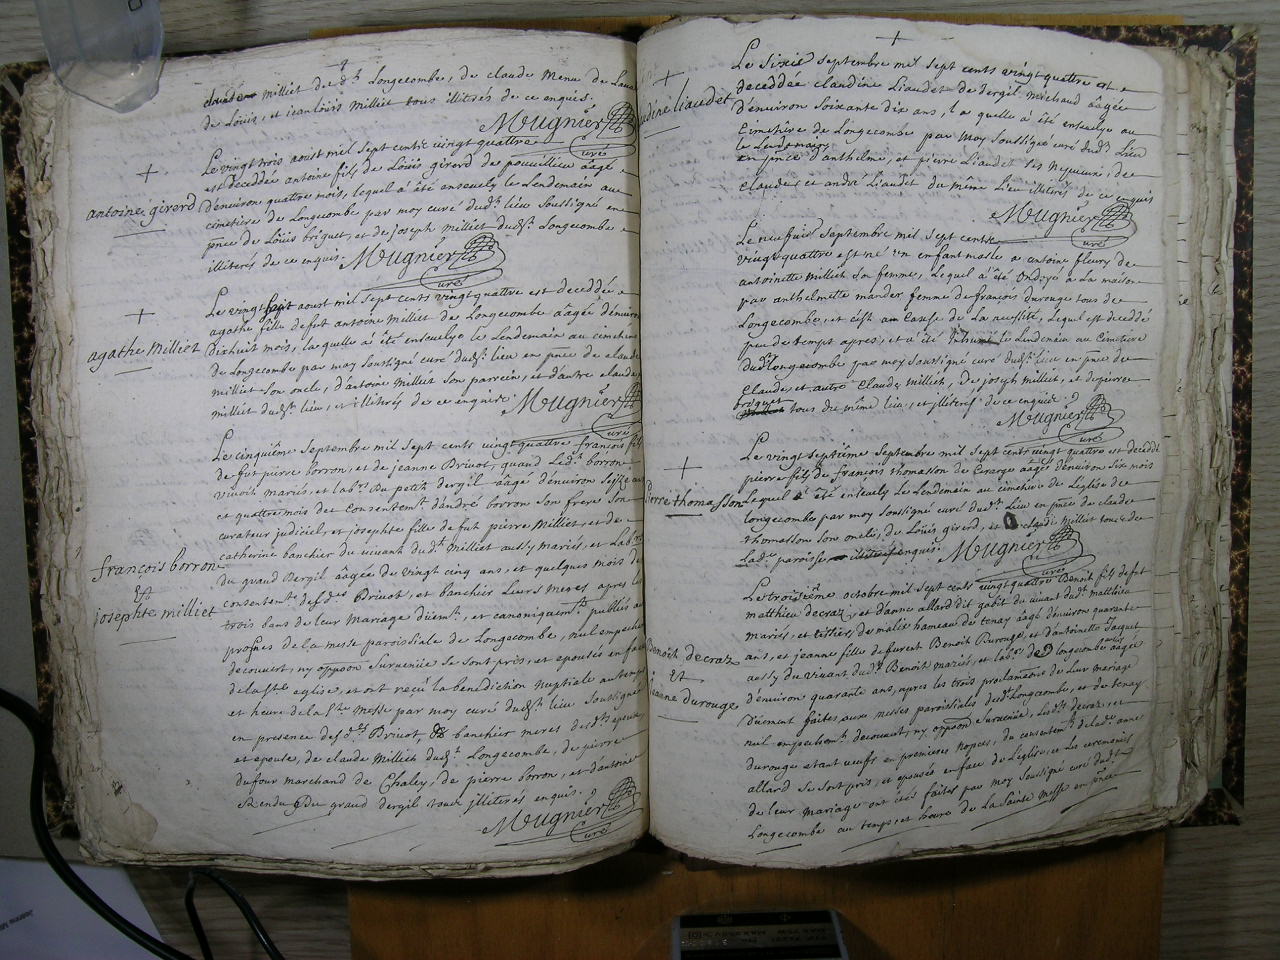 claude milliet dud.t Longecombe, de claude Menu de Lava
de Loüis, et jean loüis Milliet tous illiterés de ce enquis.
Mugnier
curé
Le vingt trois aoust mil sept cents vingt quattre
est deceddée antoine fils de Loüis girerd de pouvillieu aâgé
d'environ quattre mois, lequel a été ensevely le Lendemain au
cimetiere de Longecombe par moy curé dud.t lieu soussigné en
pnce de Loüis briguet, et de joseph milliet dud.t Longecombe
illiterés de ce enquis.
antoine girerd
Mugnier
curé
Le vingt sept aoust mil sept cents vingt quattre est deceddée
agathe fille de fut antoine Milliet de Longecombe aâgée d'environ
dixhuit mois, laquelle a été ensevelye le Lendemain au cimetiere
de Longecombe par moy soussigné curé dud.t lieu en pnce de claude
milliet son oncle, d'antoine milliet son parrein, et d'autre claude
milliet dud.t lieu, illiterés de ce enquis.
agathe Milliet
Mugnier
curé
Le cinquième septembre mil sept cents vingt quattre françois fils
de fut pierre borron, et de jeanne Brivot, quand Led.t borron
vivoit mariés, et lab.rs du petit dergil aâgé d'environ seize ans
et quattre mois du consentem.t d'andré borron son frere son
curateur judiciel, et josephte fille de fut pierre Milliet, et de
catherine banchier du vivant dud.t Milliet aussy mariés, et Lab.rs
du grand dergil aâgée de vingt cinq ans, et quelques mois de
consentem.t desd.es Brivot, et banchier leurs meres apres les
trois bans de leur Mariage düem.t, et canoniquem.t publiés au
prosnes de la messe parroissiale de Longecombe, nul empeche
decouvert, ny oppoõn survenüe se sont pris, et epousés en face
de la S.te eglise, et ont reçû la benediction nuptiale au temp
et heure de la S.te Messe par moy curé dud.t lieu soussigné
en presence desd.tes Brivot et banchier meres desd.ts epoux
et epouse, de claude Milliet dud.t Longecombe, de pierre
dufour marchand de Chaley, de pierre borron, et d'antoine
du grand dergil tous illiterés enquis.
françois borron
et
josephte milliet
Mugnier
curé
Le sixié septembre mil sept cents vingt quattre est
deceddée claudine Liaudet de dergil michaud aâgée
d'environ soixante dix ans, laquelle a été ensevelye au
Cimetiere de Longecombe par moy soussigné curé dud.t Lieu
le Lendemain
en pnce d'anthelme, et pierre Liaudet ses Neveux, de
claude, et andré Liaudet du même Lieu illiterés de ce enquis
claudine liaudet
Mugnier
curé
Le neufuié septembre mil sept cents
vingt quattre est né un enfant masle a antoine fleury de
antoinette Milliet son femme, lequel a été ondoyé a la maison
par anthelmette mander femme de françois durouge tous de
Longecombe, et c'est a Cause de La necessité, lequel est deceddé
peu de temps apres, et a été inhumé le Lendemain au Cimetiere
dud.t longecombe par moy soussigné curé dud.t lieu en pnce de
Claude, et autre Claude Milliet, de joseph milliet, et de pierre
briguet
tous du même lieu, et illiterés de ce enquis
Mugnier
curé
Le vingt septième septembre mil sept cents vingt quattre est deceddé
pierre fils de françois thomasson de Cerarge aâgé d'environ six mois
Lequel a été ensevely le Lendemain au cimetiere de L'eglise de
Longecombe par moy soussigné curé dud.t Lieu en pnce de claude
thomasson son oncle, de Loüis girerd, et claudi milliet tous de
Lad.te parroisse illiterés enquis.
Pierre thomasson
Mugnier
curé
Le troisième octobre mil sept cents vingt quattre Benoit fils de fut
matthieu decraz, et d'anne allard dit du vivant dud.t matthieu
mariés, et de malix hameau de tenay aâgé d'environ quarante
ans, et jeanne fille de furent Benoit Durouge, et d'antoinette Jaquet
aussy du vivant dud.t Benoit mariés, et lab.rs de longecombe aâgée
d'environ quarante ans, apres les trois proclamaõns de leur mariage
düement faites aux messes parroissiales dud.t Longecombe, et de tenay
nul empechem.t decouvert, ny oppoõn survenüe, lesd.ts decraz, et
durouge etant veufs en premieres nopces, du consentem.t de lad.te anne
allard se sont pris, et epousés en face de L'eglise, et les ceremonies
de leur mariage ont etés faites par moy soussigné curé dud.t
Longecombe au temps, et heure de La sainte Messe en pnce
Benoit decraz
Et
jeanne durouge